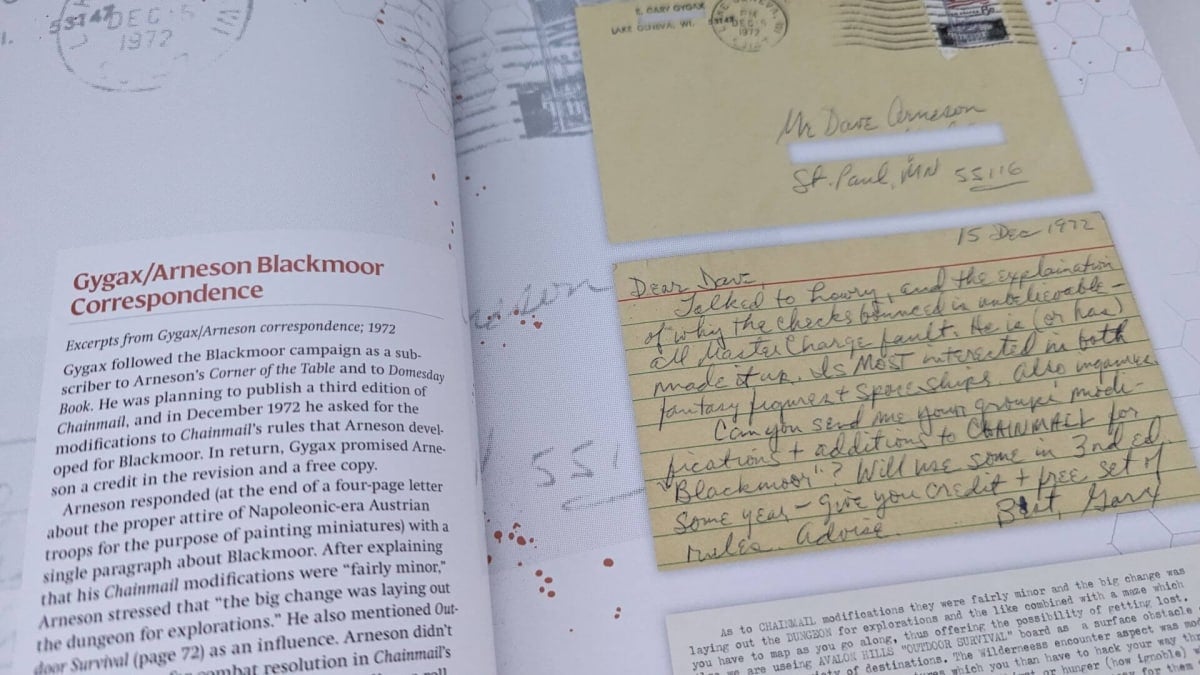 53147 DEC-5
1972
Gygax/Arneson Blackmoor
Correspondence
Excerpts from Gygax/Arneson correspondence; 1972
Gygax followed the Blackmoor campaign as a sub-
scriber to Arneson's Corner of the Table and to Domesday
Book. He was planning to publish a third edition of
Chainmail, and in December 1972 he asked for the
modifications to Chainmail's rules that Arneson devel-
oped for Blackmoor. In return, Gygax promised Arne-
son a credit in the revision and a free copy.
Arneson responded (at the end of a four-page letter
about the proper attire of Napoleonic-era Austrian
troops for the purpose of painting miniatures) with a
single paragraph about Blackmoor. After explaining
that his Chainmail modifications were "fairly minor,"
Arneson stressed that "the big change was laying out
the dungeon for explorations." He also mentioned Out-
door Survival (page 72) as an influence. Arneson didn't
combat resolution in Chainmail's
roll
551
E. GARY GYGAX
LAKE GENEVA, WI.
LAKE GENEVA, WI
53147
PM
DEC-5
1972
Mr Dave Arneson
St. Paul, MN 55116
15 Dec 1972
Dear Dave,
Talked to Lowry, and the explaination
of why the checks bounced is unbelievable -
all Master Charge fault. He is (or has)
made it up. Is MOST interested in both
fantasy figures + Space ships. Also
Can you send me your groups' modi-
fications + additions to CHAINMAIL for
"Blackmoor"? Will use some in 3nd ed.
some year - give you credit + free set of
rules. Advise.
Best, Gary
As to CHAINMAIL modifications they were fairly minor and the big change was
laying out the DUNGEON for explorations and the like combined with a maze which
you have to map as you go along, thus offering the possibility of getting lost.
we are useing AVALON HILLS "OUTDOOR SURVIVAL" board as a surface obstacle
of destinations. The Wilderneess encounter aspect was
which you than have to hack your way
or hunger (how ignoble)
for them